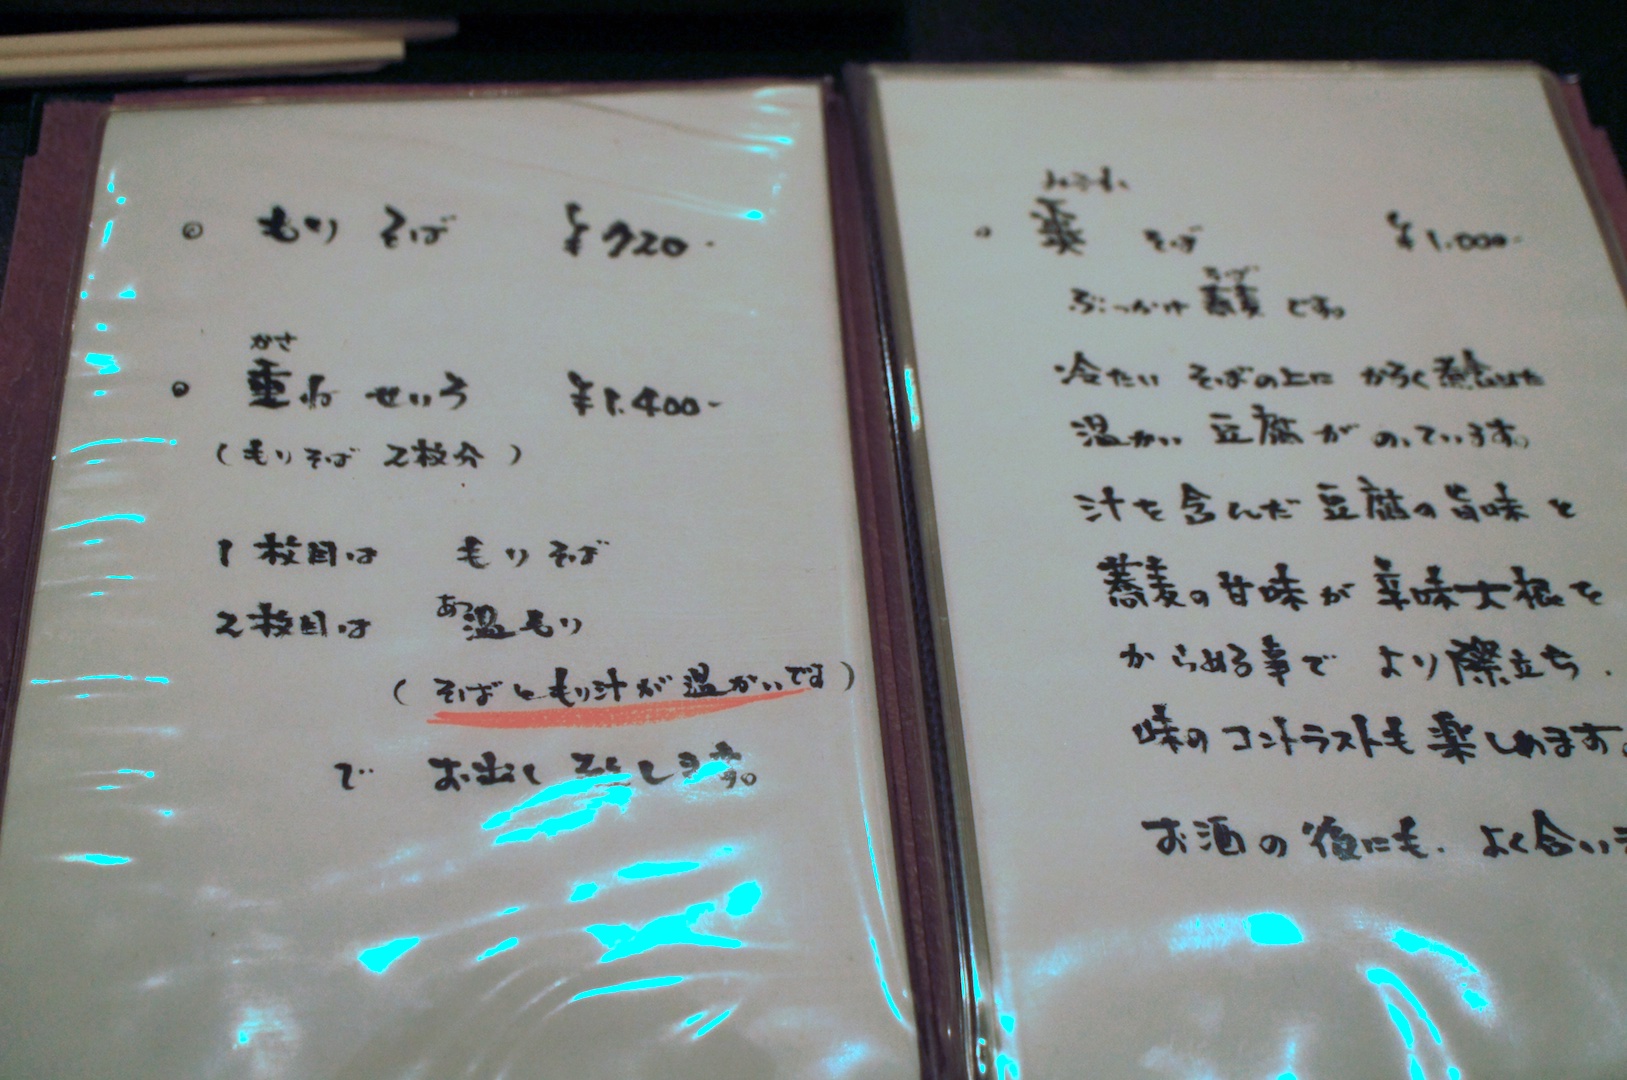 もりそば ¥720-
かさ
重ねせいろ ¥1,400-
(もりそば 2枚分)
1枚目は もりそば
2枚目は 温もり
あつ
(そばともり汁が温かいです)
で お出し致します。
そば ¥1,000-
そば
ぶっかけ蕎麦です。
冷たい そばの上に かるく煮含めた
温かい 豆腐が のっています。
汁を含んだ豆腐の旨味と
蕎麦の甘味が 辛味大根を
からめる事で より際立ち、
味のコントラストも楽しめます。
お酒の後にも、よく合いま